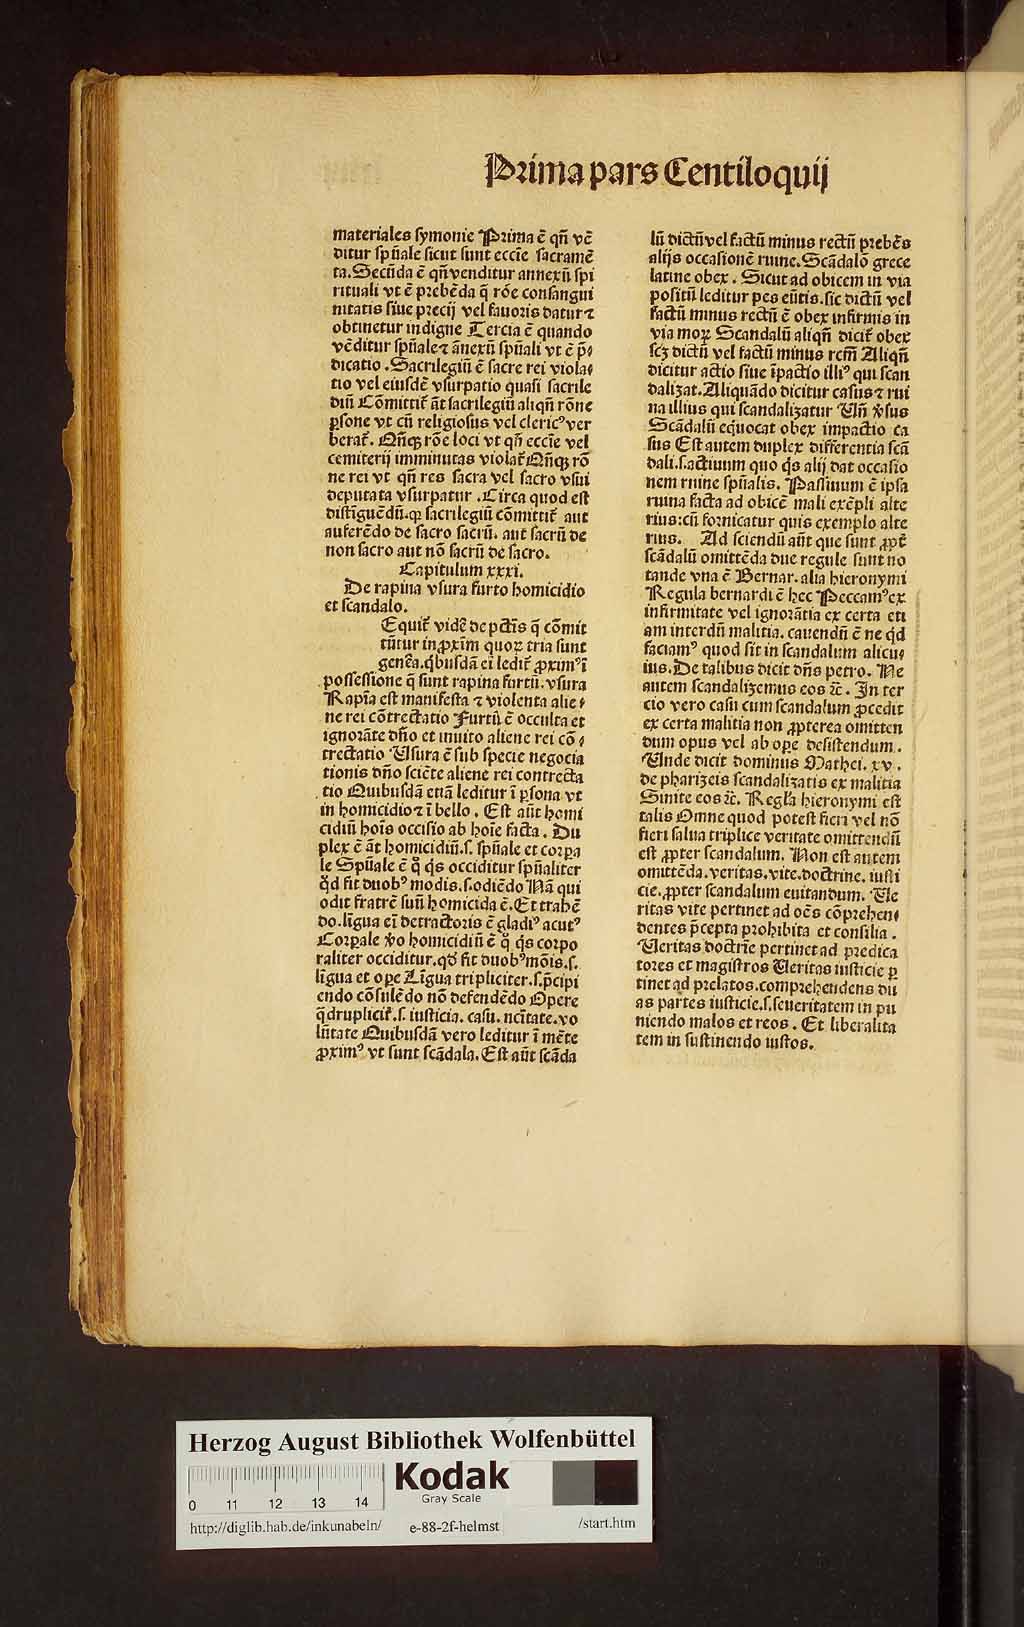 Prima pars Centiloquij
materiales symonie Prima ē qn̄ vē
ditur spn̄ale sicut sunt eccīe sacramē
ta. Secūda ē qn̄ venditur annexū spi
rituali vt ē prebēda q̄ rōe consangui
nitatis siue precij vel fauoris datur ⁊
obtinetur indigne Tercia ē quando
vēditur spn̄ale ⁊ ānexū spn̄ali vt ē p̄⸗
dicatio . Sacrilegiū ē sacre rei viola⸗
tio vel eiusdē vsurpatio quasi sacrile
diū Cōmittit᷑ āt sacrilegiū aliqn̄ rōne
ꝑsone vt cū religiosus vel clericꝰ ver
berat᷑. Qn̄qꝫ rōe loci vt qn̄ eccīe vel
cemiterij imminutas violat᷑ Qn̄qꝫ rō
ne rei vt qn̄ res sacra vel sacro vsui
deputata vsurpatur . Circa quod est
distīguēdū. ꝙ sacrilegiū cōmittit᷑ aut
auferēdo de sacro sacrū. aut sacrū de
non sacro aut nō sacrū de sacro.
Capitulum xxxi.
De rapina vsura furto homicidio
et scandalo.
Equit᷑ vidē de pctīs q̄ cōmit
tūtur in ꝓxīm quoꝝ tria sunt
genēa. qͥbusdā eī ledit᷑ ꝓximꝰ ī
possessione q̄ sunt rapina furtū. vsura
Rapīa est manifesta ⁊ violenta alie⸗
ne rei cōtrectatio Furtū ē occulta et
ignorāte dn̄o et inuito aliene rei cō⸗
trectatio Usura ē sub specie negocia
tionis dn̄o sciēte aliene rei contrecta
tio Quibusdā etiā leditur ī ꝑsona vt
in homicidio ⁊ ī bello . Est aūt homi
cidiū hoīs occisio ab hoīe facta . Du
plex ē āt homicidiū. s. spn̄ale et corpa
le Spn̄ale ē qͦ qͥs occiditur spn̄aliter
qͦd fit duobꝰ modis. s. odiēdo Nā qui
odit fratrē suū homicida ē. Et trahē
do. līgua eī detractoris ē gladiꝰ acutꝰ
Corꝑale v̊o homicidiū ē qͦ qͥs corpo
raliter occiditur. qd̓ fit duobꝰ mōis. s.
līgua et oꝑe Līgua tripliciter. s. p̄cipi
endo cōsulēdo nō defendēdo Opere
q̄druplicit᷑. s. iusticia. casu. nc̄itate. vo
lūtate Quibusdā vero leditur ī mēte
ꝓximꝰ vt sunt scādala. Est aūt scāda
lū dictū vel factū minus rectū prebēs
alijs occasionē ruine. Scādalō grece
latine obex . Sicut ad obicem in via
positū leditur pes eūtis. sic dictū vel
factū minus rectū ē obex infirmis in
via moꝝ Scandalū aliqn̄ dicit᷑ obex
scꝫ dictū vel factū minus rcm̄ Aliqn̄
dicitur actio siue īpactio illiꝰ qui scan
dalizat. Aliquādo dicitur casus ⁊ rui
na illius qui scandalizatur Un̄ v̊sus
Scādalū equocat obex impactio ca
sus Est autem duplex differentia scā
dali. s. actiuum quo qͥs alij dat occasio
nem ruine spn̄alis. Passiuum ē ipsa
ruina facta ad obicē mali exēpli alte
rius: cū fornicatur quis exemplo alte
rius. Ad sciendū aūt que sunt ꝓpt᷑
scādalū omittēda due regule sunt no
tande vna ē Bernar. alia hieronymi
Regula bernardi ē hec Peccamꝰ ex
infirmitate vel ignorātia ex certa eti
am interdū malitia. cauendū ē ne qͥd
faciamꝰ quod sit in scandalum alicu⸗
ius. De talibus dicit dn̄s petro. Ne
autem scandalizemus eos ⁊c̄. In ter
cio vero casu cum scandalum ꝓcedit
ex certa malitia non ꝓpterea omitten
dum opus vel ab oꝑe desistendum.
Unde dicit dominus Mathei. xv.
de pharizeis scandalizatis ex malitia
Sinite eos ⁊c̄. Regl̓a hieronymi est
talis Omne quod potest fieri vel nō
fieri salua triplice veritate omittendū
est ꝓpter scandalum. Non est autem
omittēda. veritas. vite. doctrine. iusti
cie. ꝓpter scandalum euitandum. Ue
ritas vite pertinet ad oēs cōprehen⸗
dentes p̄cepta prohibita et consilia .
Ueritas doctrīe pertinet ad predica
tores et magistros Ueritas iusticie ꝑ
tinet ad prelatos. comprehendens du
as partes iusticie. s. seueritatem in pu
niendo malos et reos . Et liberalita
tem in sustinendo iustos.
Herzog August Bibliothek Wolfenbüttel
Kodak
Gray Scale
0 11 12 13 14
http://diglib.hab.de/inkunabeln/ e-88-2f-helmst /start.htm